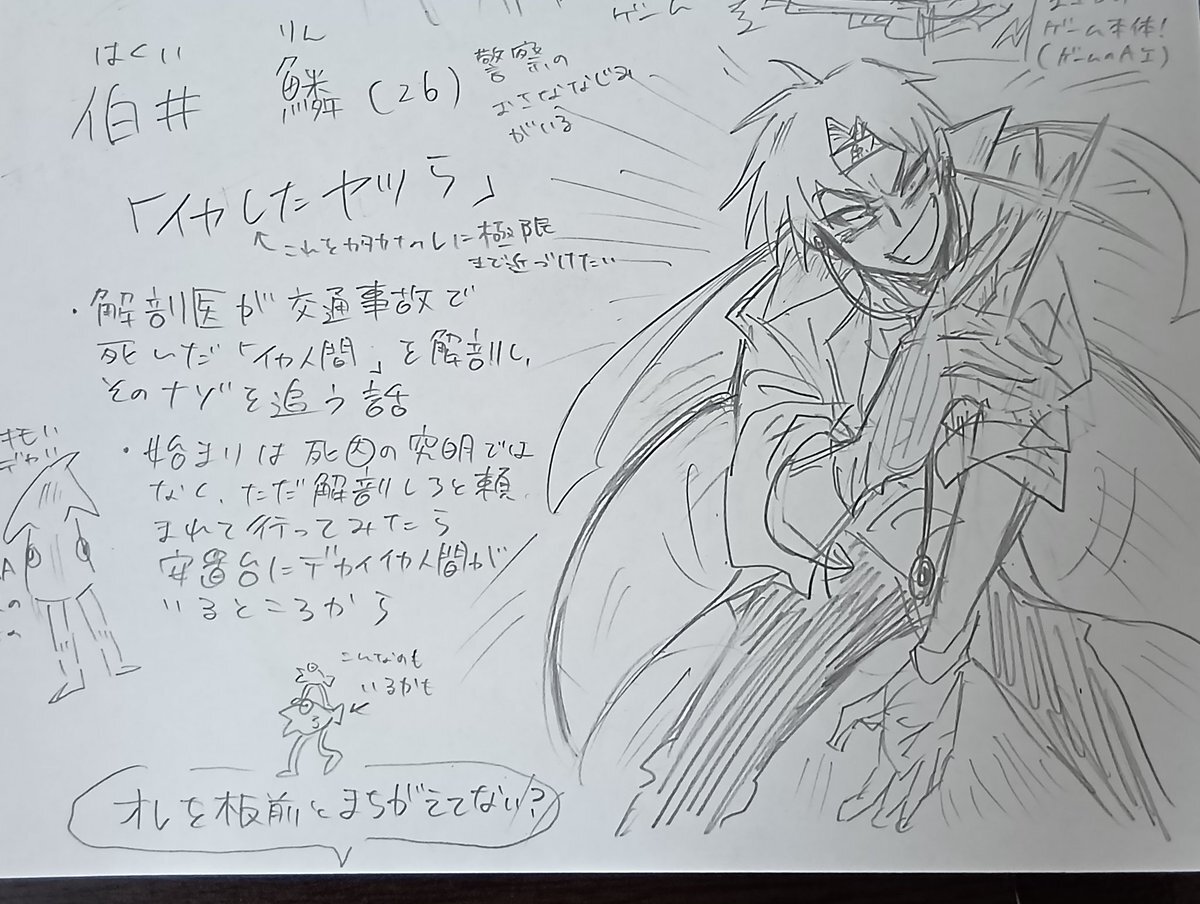 ゲーム
ゲーム本体!
(ゲームのAI)
はくい りん
伯井 鱗(26)
警察の
おさななじみ
がいる
「イカしたヤツら」
↖これをカタカナのレに極限
まで近づけたい
・解剖医が交通事故で
死いだ「イカ人間」を解剖し、
そのナゾを追う話
・始まりは死因の究明では
なく、ただ解剖しろと頼
まれて行ってみたら
安置台にデカイイカ人間が
いるところから
キモい
デカい
こんなのも
いるかも
オレを板前とまちがえてない?